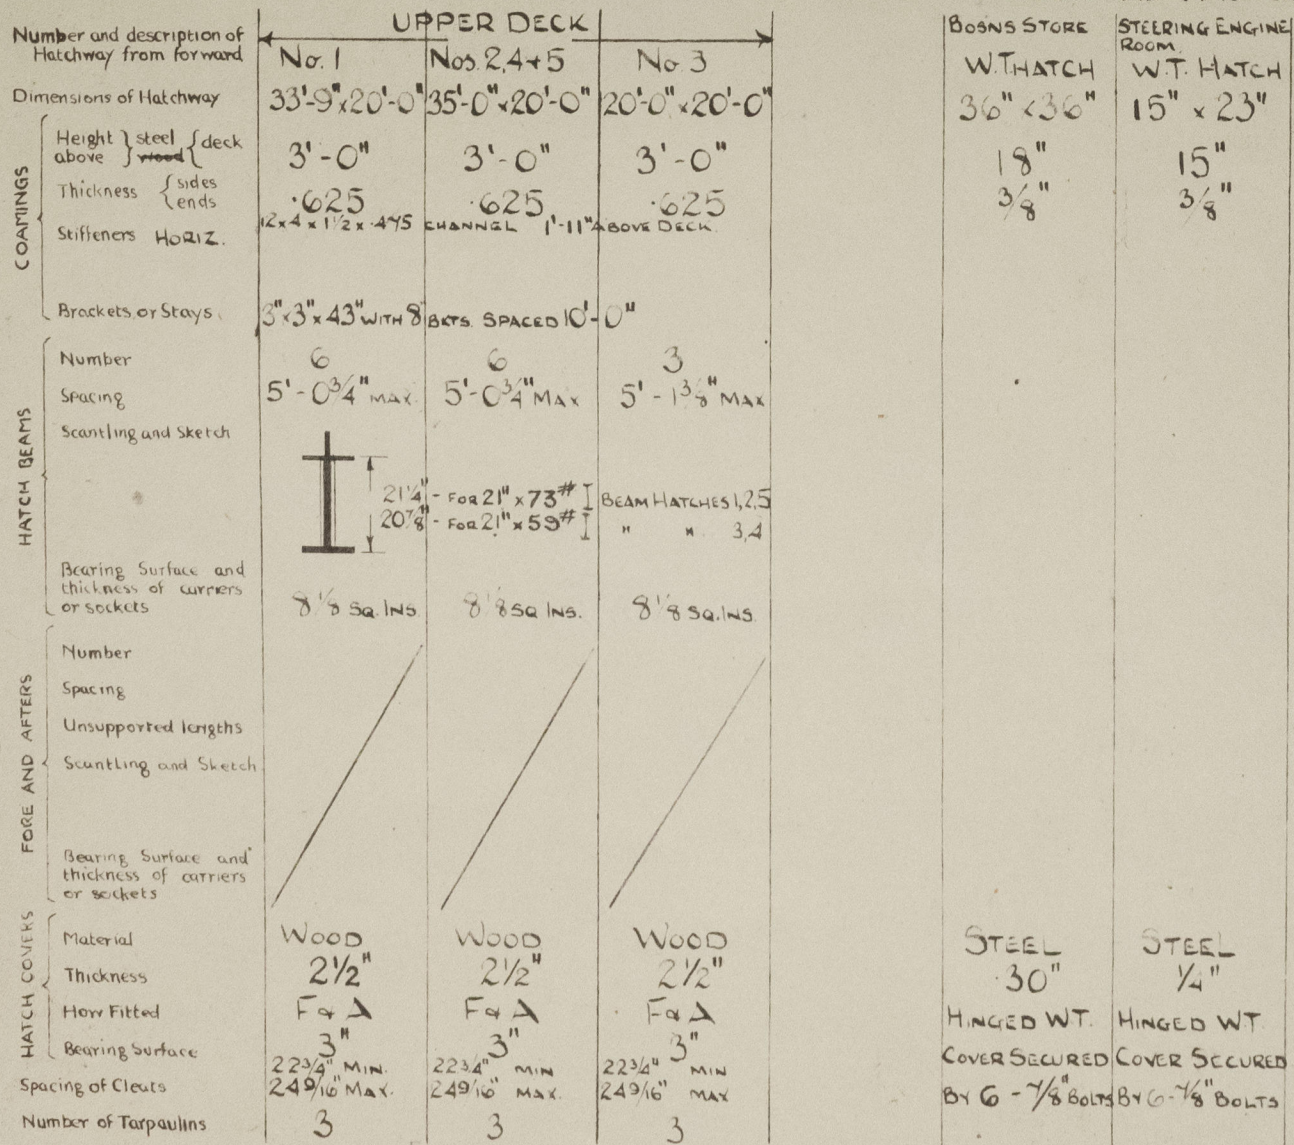 UPPER DECK
BOSNS STORE STEERING ENGINE ROOM
Number and description of Hatchway from forward No. 1 Nos. 2,4+5 No 3 W.T. HATCH W.T. HATCH
Dimensions of Hatchway 33'-9"x20'-0" 35'-0"x20'-0" 20'-0"x20'-0" 36"x36" 15" x 23"
COAMINGS
Height above } steel wood { deck 3'-0" 3'-0" 3'-0" 18" 15"
Thickness { sides ends .625 .625 .625 3/8" 3/8"
Stiffeners HORIZ. 12x4x1 1/2x.475 CHANNEL 1'-11" ABOVE DECK.
Brackets or Stays 3"x3"x43" WITH 8" BKTS. SPACED 10'-0"
HATCH BEAMS
Number 6 6 3
Spacing 5'-0 3/4" MAX. 5'-0 3/4" MAX 5'-1 3/8" MAX
Scantling and Sketch
21 1/4" - FOR 21" x 73# I BEAM HATCHES 1,2,5
20 7/8" - FOR 21" x 59# I " " 3,4
Bearing Surface and
thickness of carriers
or sockets 8 1/8 SQ. INS 8 1/8 SQ INS. 8 1/8 SQ. INS
FORE AND AFTERS
Number
Spacing
Unsupported lengths
Scantling and Sketch
Bearing Surface and
thickness of carriers
or sockets
HATCH COVERS
Material WOOD WOOD WOOD STEEL STEEL
Thickness 2 1/2" 2 1/2" 2 1/2" .30" 1/4"
How Fitted F & A F & A F & A HINGED W.T. HINGED W.T.
Bearing Surface 3" 3" 3" COVER SECURED COVER SECURED
22 3/4" MIN. 22 3/4" MIN 22 3/4" MIN
Spacing of Cleats 24 9/16" MAX. 24 9/16" MAX. 24 9/16" MAX BY 6 - 7/8" BOLTS BY 6 - 7/8" BOLTS
Number of Tarpaulins 3 3 3